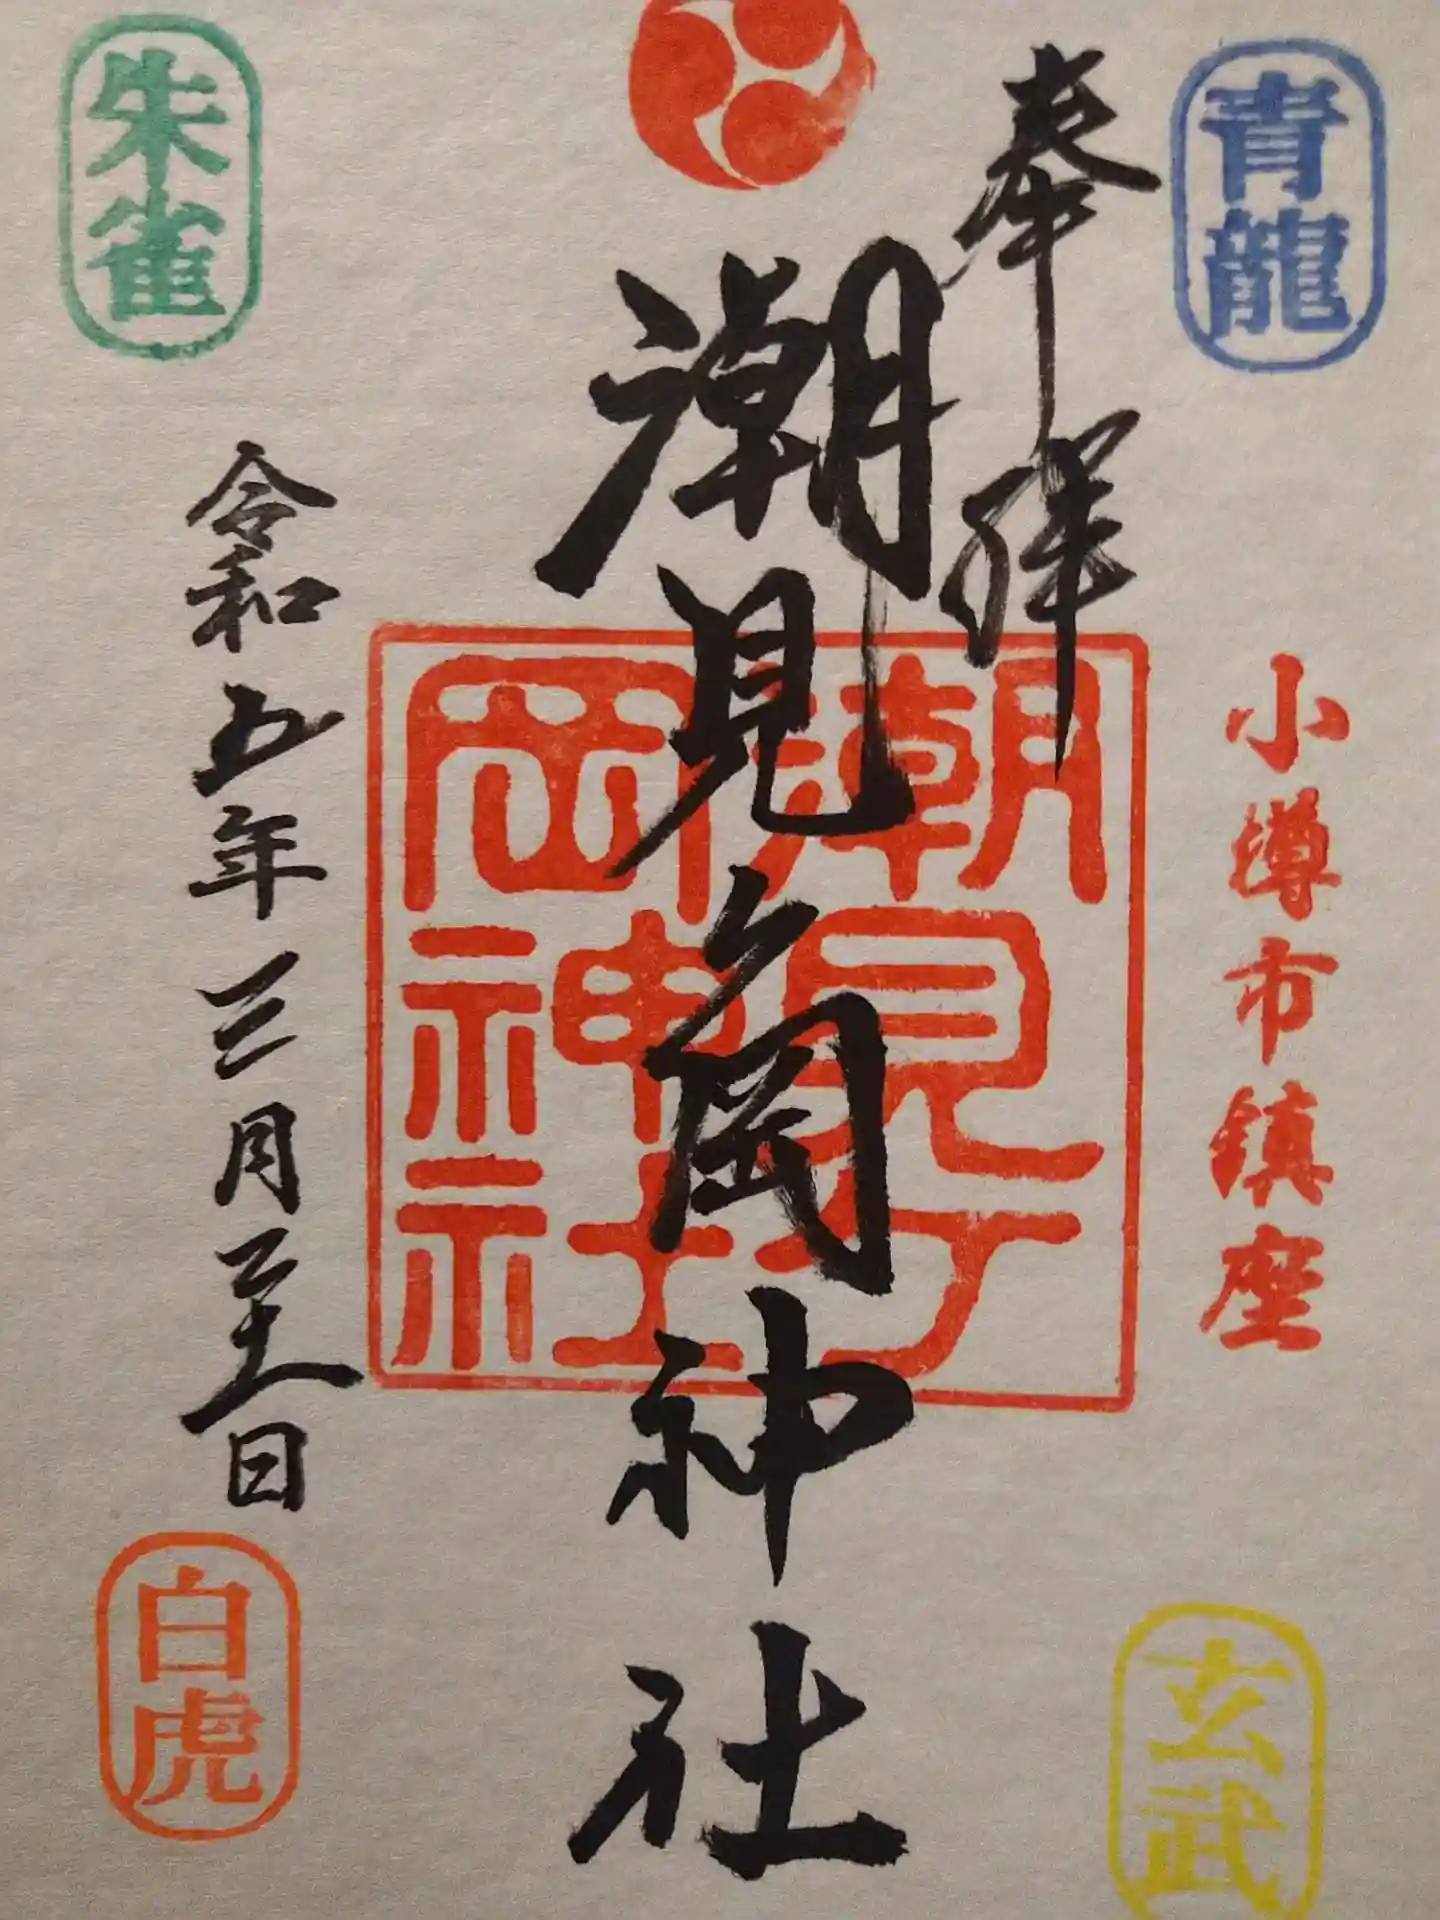 青龍
奉拝
小樽市鎮座
潮見ヶ岡神社
潮見ヶ
岡神社
朱雀
令和五年三月三十一日
白虎
玄武